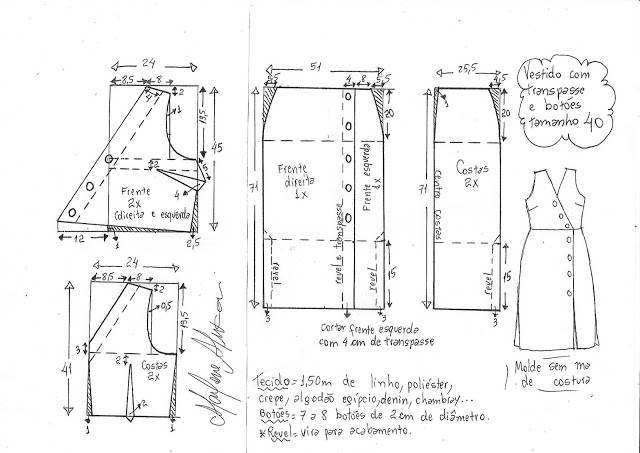 24
8,5
8
2
4
1
19,5
45
5
2
4
Frente
2x
(direita e esquerda
12
1
2,5
24
8,5
8
2
0,5
19,5
3
2
41
Costas
2x
2
1
1
51
5
4
8
5
20
71
Frente
direita
1x
revel e transpasse
Frente esquerda
1x
revel
revel
15
3
3
Cortar frente esquerda
com 4 cm de transpasse
25,5
4,5
1
20
71
centro costas
Costas
2x
revel
15
3
Vestido com
transpasse
e botões
tamanho 40
Molde sem ma
de costura
Tecido = 1,50m de linho, poliéster,
crepe, algodão egípcio, denin, chambray...
Botões = 7 a 8 botões de 2 cm de diâmetro.
* Revel = vira para acabamento.